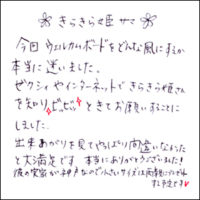 きらきら姫サマ
今回ウェルカムボードをどんな風にするか
本当に迷いました。
ゼクシィやインターネットできらきら姫さん
を知りビビッときてお願いすることに
しました。
出来あがりを見てやっぱり間違いなかった
と大満足です 本当にありがとうございました!
彼の実家が神戸なので小さいサイズは両親にプレゼント
する予定です